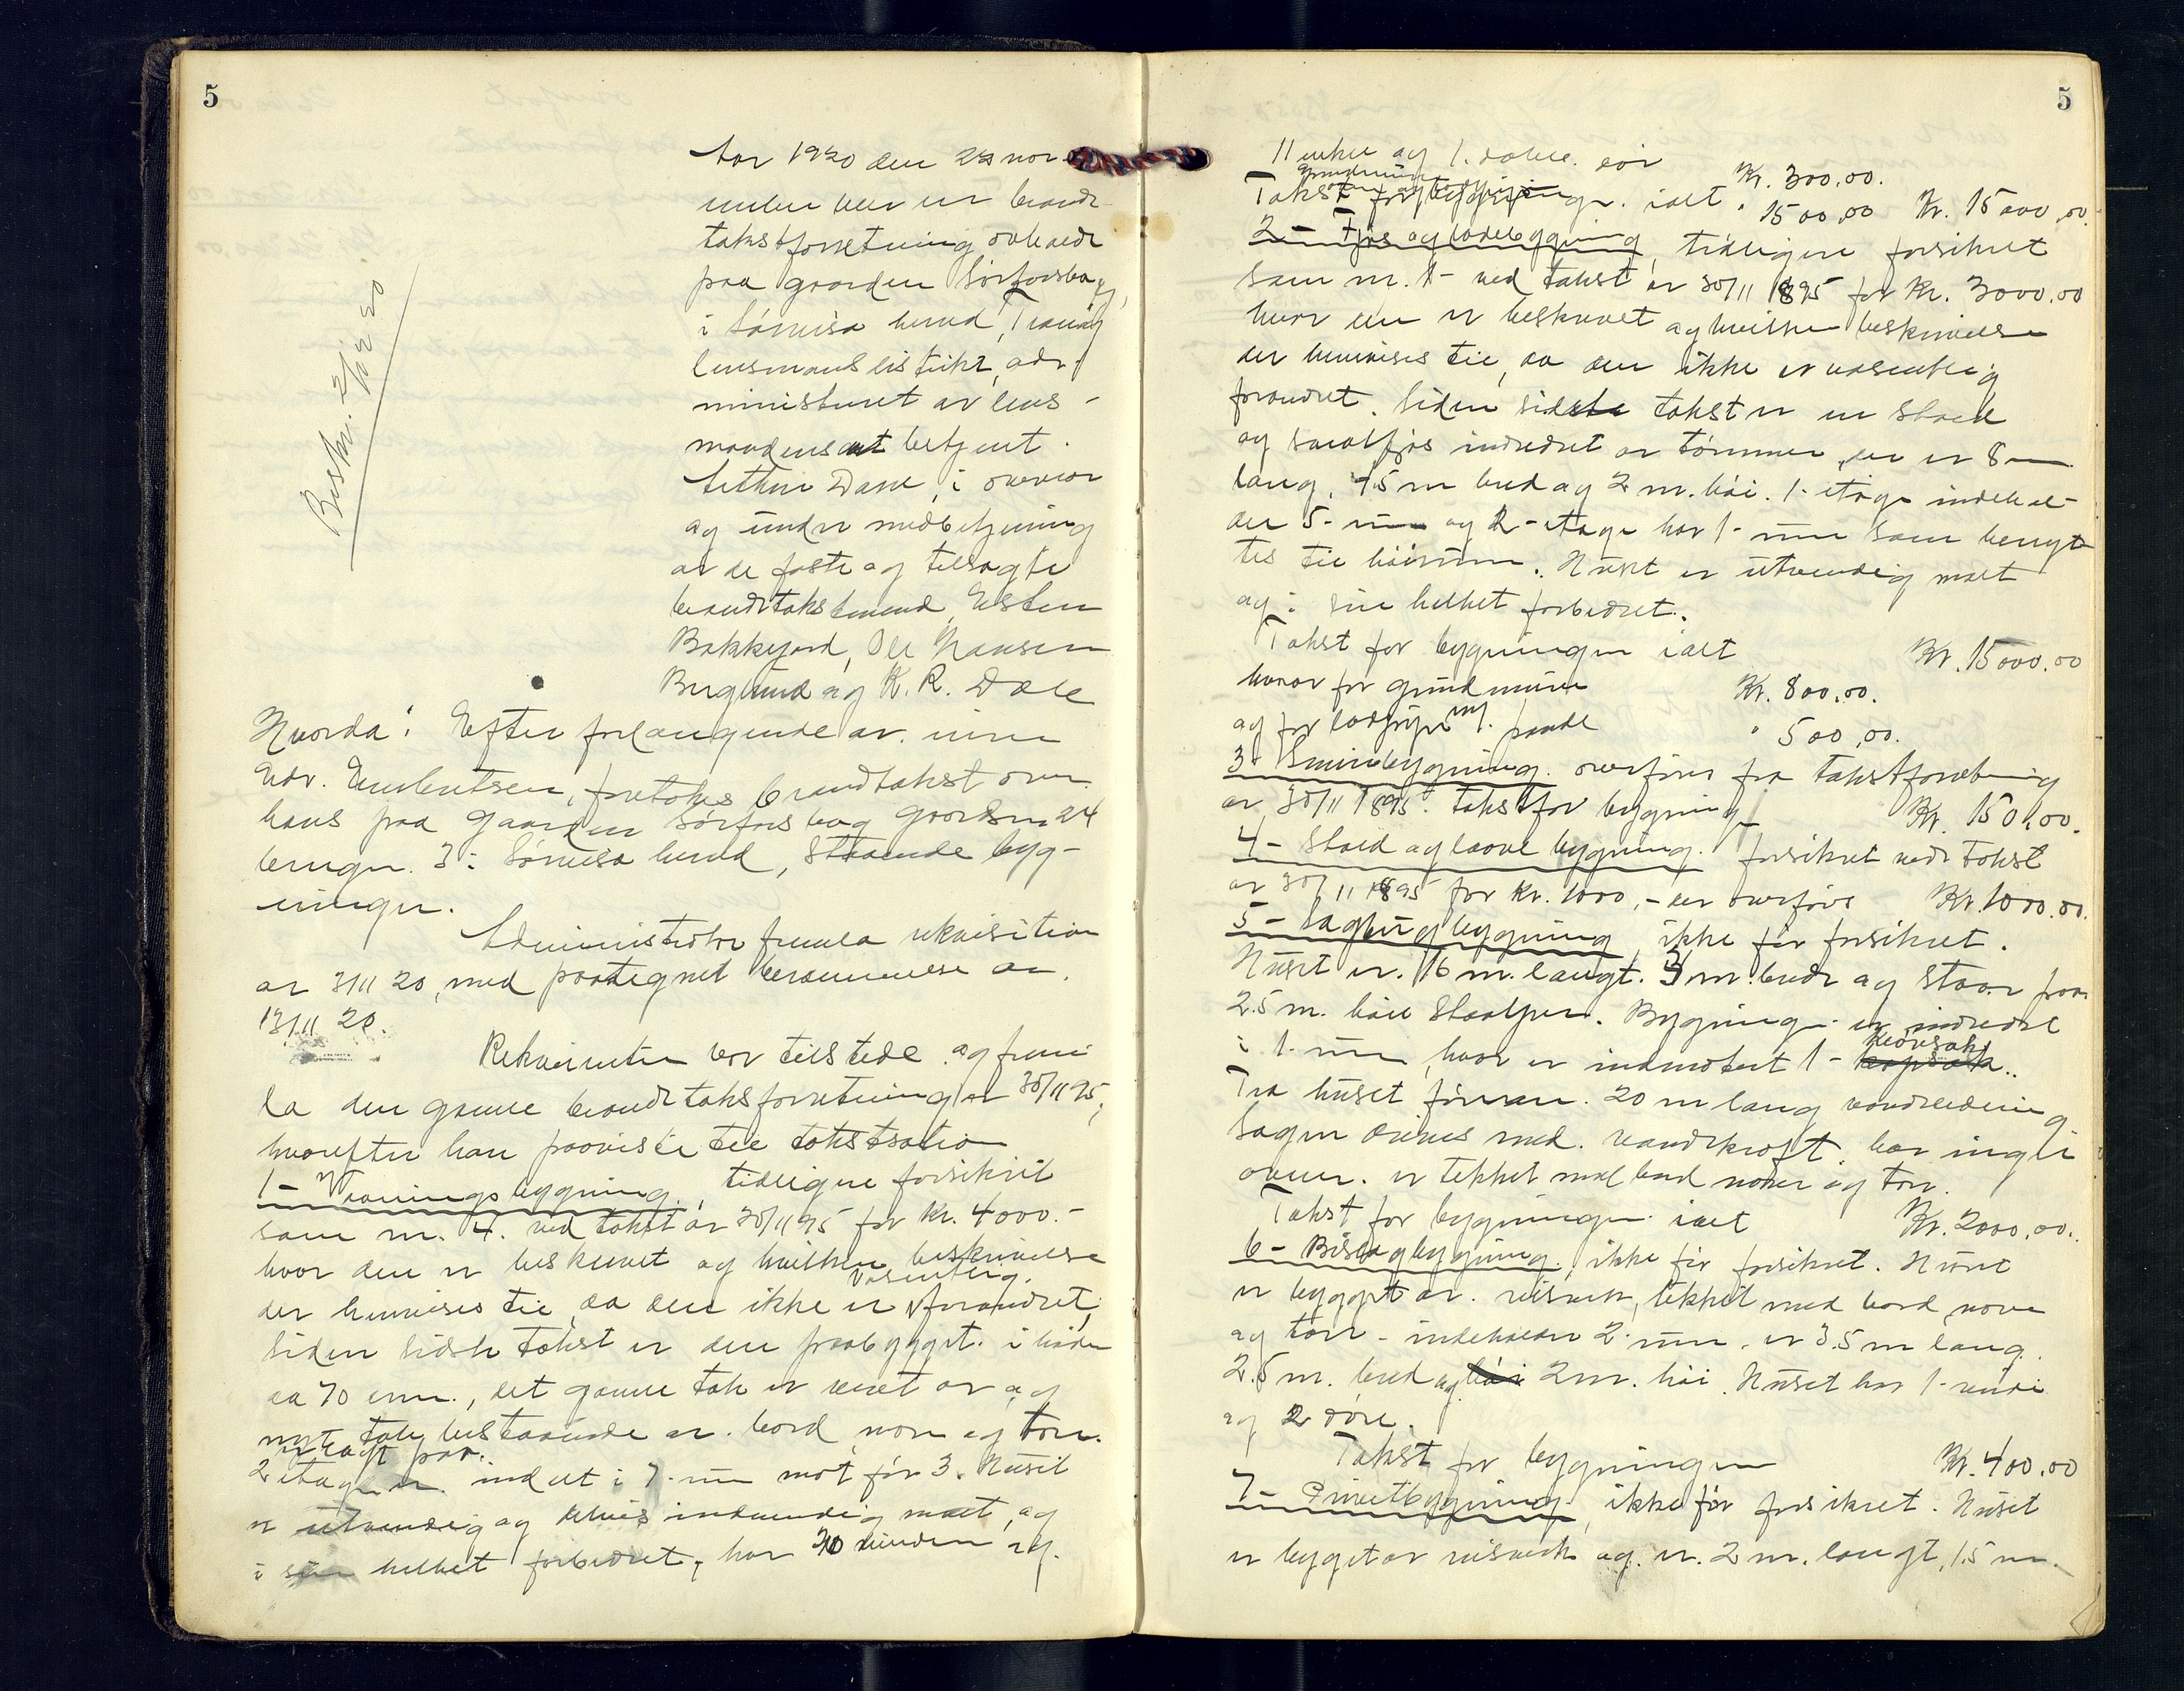 5
Aar 1920 den 22 nov
ember blev en brand-
takstforretning avholdt
paa gaarden Sørforsbog,
i Sørreisa herred, Tranøy
lensmansdistrikt, ad-
ministreret av lens-
mandens betjent
Arthur Dane, i overvær
og under medbetjening
av de faste og tilsagte
brandtakstmænd, Esten
Bakkejord, Ole Hansen
Berglund og K. R. Dale
Bestr. 2/12 20
Hvorda: Efter forlangende av
Edv. Engebretsen, foretokes brandtakst over
hans paa gaarden Sørforsbog gaardsnr 24
bruksnr. 3 i Sørreisa herred, staaende byg-
ninger.
Administrator fremla rekvisition
av 3/11 20, med paategnet berammelse av
13/11 20.
Rekvirenten var tilstede og frem-
la den gamle brandtakstforretning av 30/11 95,
hvorefter han paaviste til takstation
1- Vaaningsbygning, tidligere forsikret
som nr. 4. ved takst av 30/11 95 for Kr. 4000.-
hvor den er beskrevet og hvilken beskrivelse
der henvises til, da den ikke er væsentlig forandret,
siden sidste takst er den paabygget i høiden
ca 70 cm., det gamle tak er revet av og
nyt tak bestaaende av bord, næver og torv
er lagt paa.
2 etage er inddelt i 7 rum mot før 3. Huset
er utvendig og delvis indvendig malt, og
i sin helhet forbedret, har 20 vinduer og
5
11 enkle og 1. dobbel dør
grundmuren Kr. 300.00.
Takst for bygningen ialt " 1500,00 Kr. 15000,00
2- Fjøs og ladebygning, tidligere forsikret
som nr. 1- ved takst av 30/11 1895 for Kr. 3000.00
hvor den er beskrevet og hvilken beskrivelse
der henvises til, da den ikke er væsentlig
forandret. Siden sidste takst er en stald
og smalfjøs indredet av tømmer, der er 8 m
lang, 4.5 m bred og 2 m. høi. 1- etage indehol-
der 5- rum og 2- etage har 1- rum som benyt-
tes til høirum. Huset er utvendig malt
og i sin helhet forbedret.
Takst for bygningen ialt Kr. 15000.00
hvorav for grundmuren Kr. 800.00.
og for m/. pande " 500.00.
3- Smiebygning. overføres fra takstforretning
av 30/11 1895. takst for bygningen Kr. 150.00.
4- Stald og laavebygning. forsikret ved takst
av 30/11 1895 for Kr. 1000,- der overføres Kr. 1000.00.
5- Sagbrugbygning, ikke før forsikret.
Huset er. 16 m. langt. 3 m. bredt og staar paa
2.5 m. høie staalper. Bygningen er indredet
i 1- rum, hvor er indmontert 1-
Fra huset fører en 20 m lang vandledning
sagen drives med. vandkraft, har ingen
ovner. er tekket med bord næver og torv.
Takst for bygningen ialt Kr. 2000.00.
6- Bislagbygning, ikke før forsikret. Huset
er bygget av reisverk, tekket med bord næver
og torv - indeholder 2- rum, er 3.5 m lang.
2.5 m. bred og 2m. høi. Huset har 1- vindu
og 2 døre.
Takst for bygningen Kr. 400.00
7- Privetbygning, ikke før forsikret. Huset
er bygget av reisverk og er. 2 m. langt, 1.5 m.